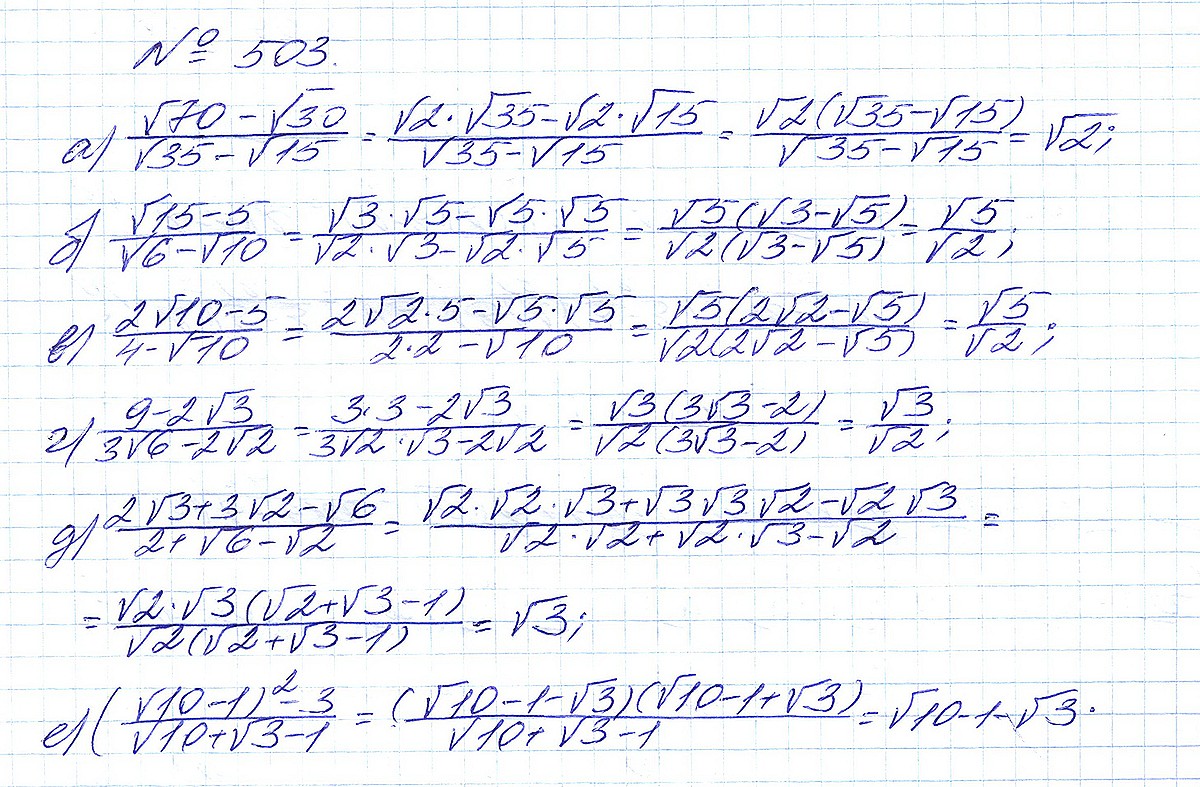 № 503.
а) (√70 - √30)/(√35 - √15) = (√2·√35 - √2·√15)/(√35 - √15) = √2(√35 - √15)/(√35 - √15) = √2;
б) (√15 - 5)/(√6 - √10) = (√3·√5 - √5·√5)/(√2·√3 - √2·√5) = √5(√3 - √5)/√2(√3 - √5) = √5/√2;
в) (2√10 - 5)/(4 - √10) = (2√2·5 - √5·√5)/(2·2 - √10) = √5(2√2 - √5)/√2(2√2 - √5) = √5/√2;
г) (9 - 2√3)/(3√6 - 2√2) = (3·3 - 2√3)/(3√2·√3 - 2√2) = √3(3√3 - 2)/√2(3√3 - 2) = √3/√2;
д) (2√3 + 3√2 - √6)/(2 + √6 - √2) = (√2·√2·√3 + √3√3·√2 - √2√3)/(√2·√2 + √2·√3 - √2) =
= √2·√3(√2 + √3 - 1)/√2(√2 + √3 - 1) = √3;
е) ((√10 - 1)² - 3)/(√10 + √3 - 1) = (√10 - 1 - √3)(√10 - 1 + √3)/(√10 + √3 - 1) = √10 - 1 - √3.